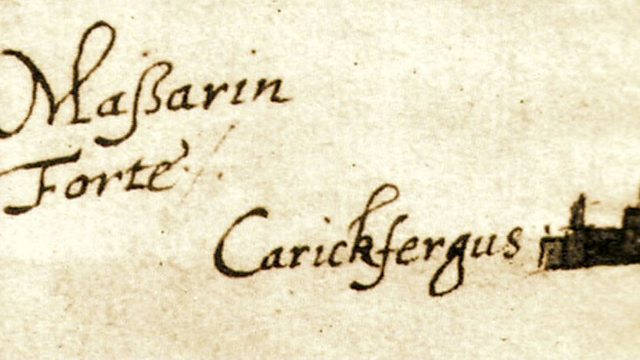 Maßarin
Forte
Carickfergus